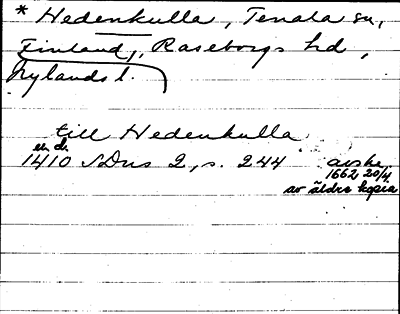 * Hedenkulla, Tenala sn,
Finland, Raseborgs hd,
Nylands l.
till Hedenkulla
u.d.
1410 SDns 2, s. 244 avskr.
1662 20/4
av äldre kopia